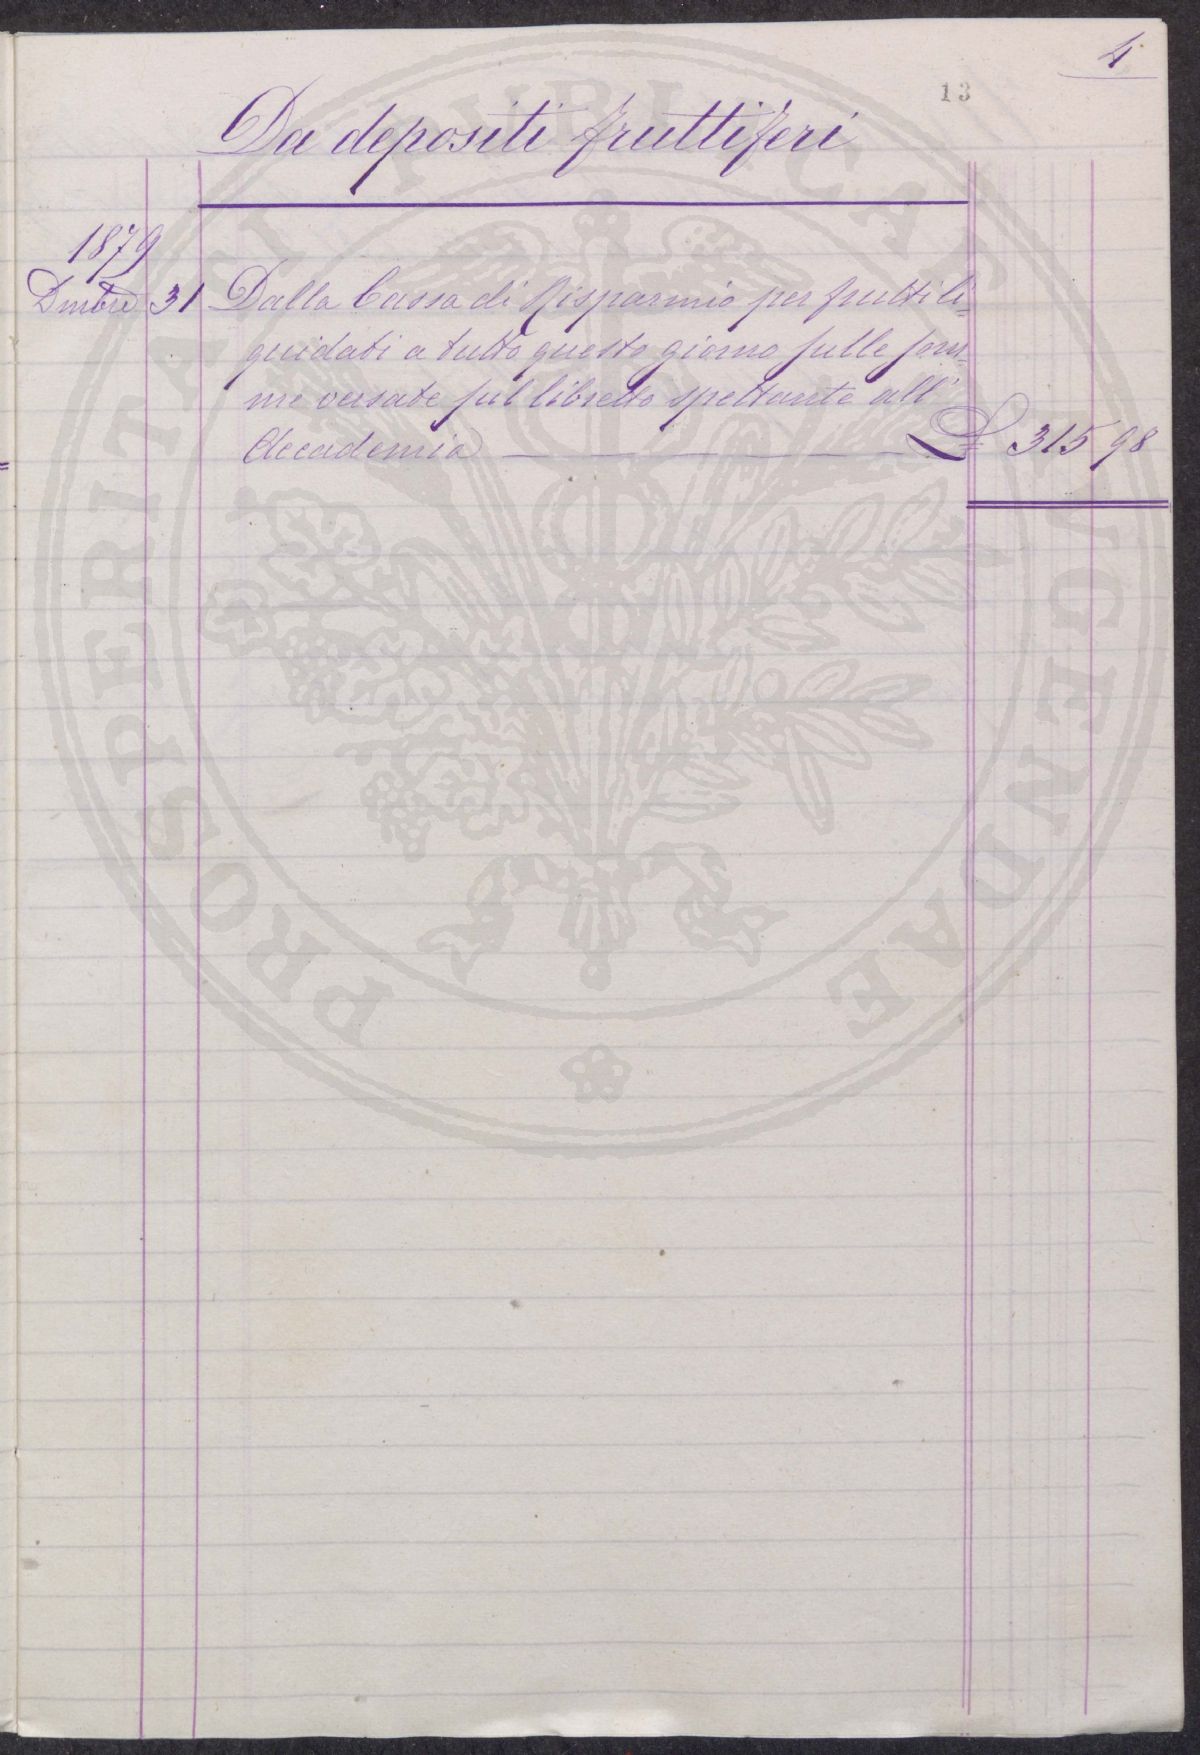 4
13
Da depositi fruttiferi
1879
Dmbre 31 Dalla Cassa di Risparmio per frutti li=
quidati a tutto questo giorno sulle som=
me versate sul libretto spettante all'
Accademia £ 315 98
PROSPERITATI PUBLICAE AVGENDAE